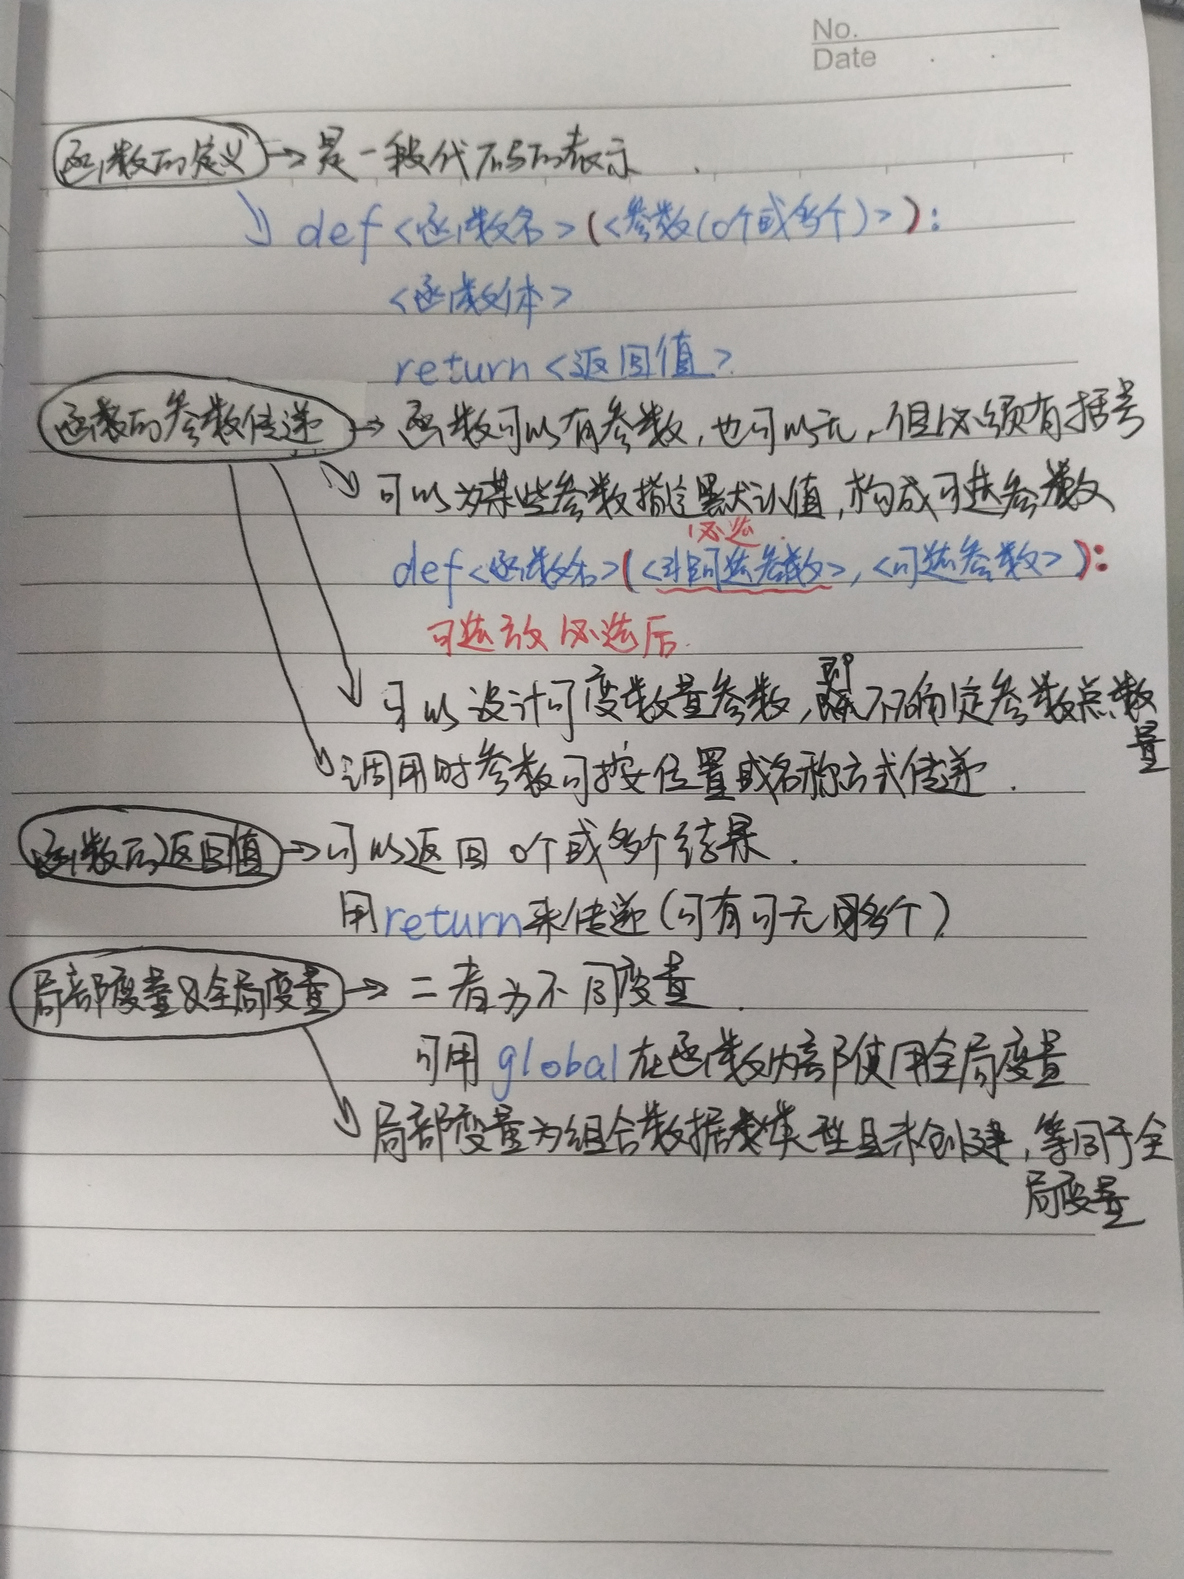 No.
Date
函数的定义 → 是一段代码的表示.
def <函数名>(<参数(0个或多个)>):
<函数体>
return <返回值>
函数的参数传递 → 函数可以有参数,也可以无,但必须有括号
可以为某些参数指定默认值,构成可选参数
必选
def <函数名>(<非可选参数>,<可选参数>):
可选放必选后.
可以设计可变数量参数,即不确定参数总数量
调用时参数可按位置或名称方式传递.
函数的返回值 → 可以返回0个或多个结果.
用return来传递(可有可无可多个)
局部变量&全局变量 → 二者为不同变量.
可用global在函数内部使用全局变量
局部变量为组合数据类型且未创建,等同于全
局变量